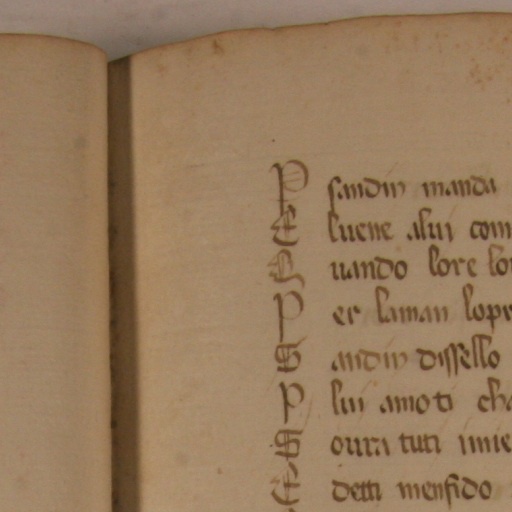 P sandin manda
E luene alui com
Q uando lore lo
P er laman lopr
S andin dissello
P lui amoti cha
S oura tuti
E detti mensfido